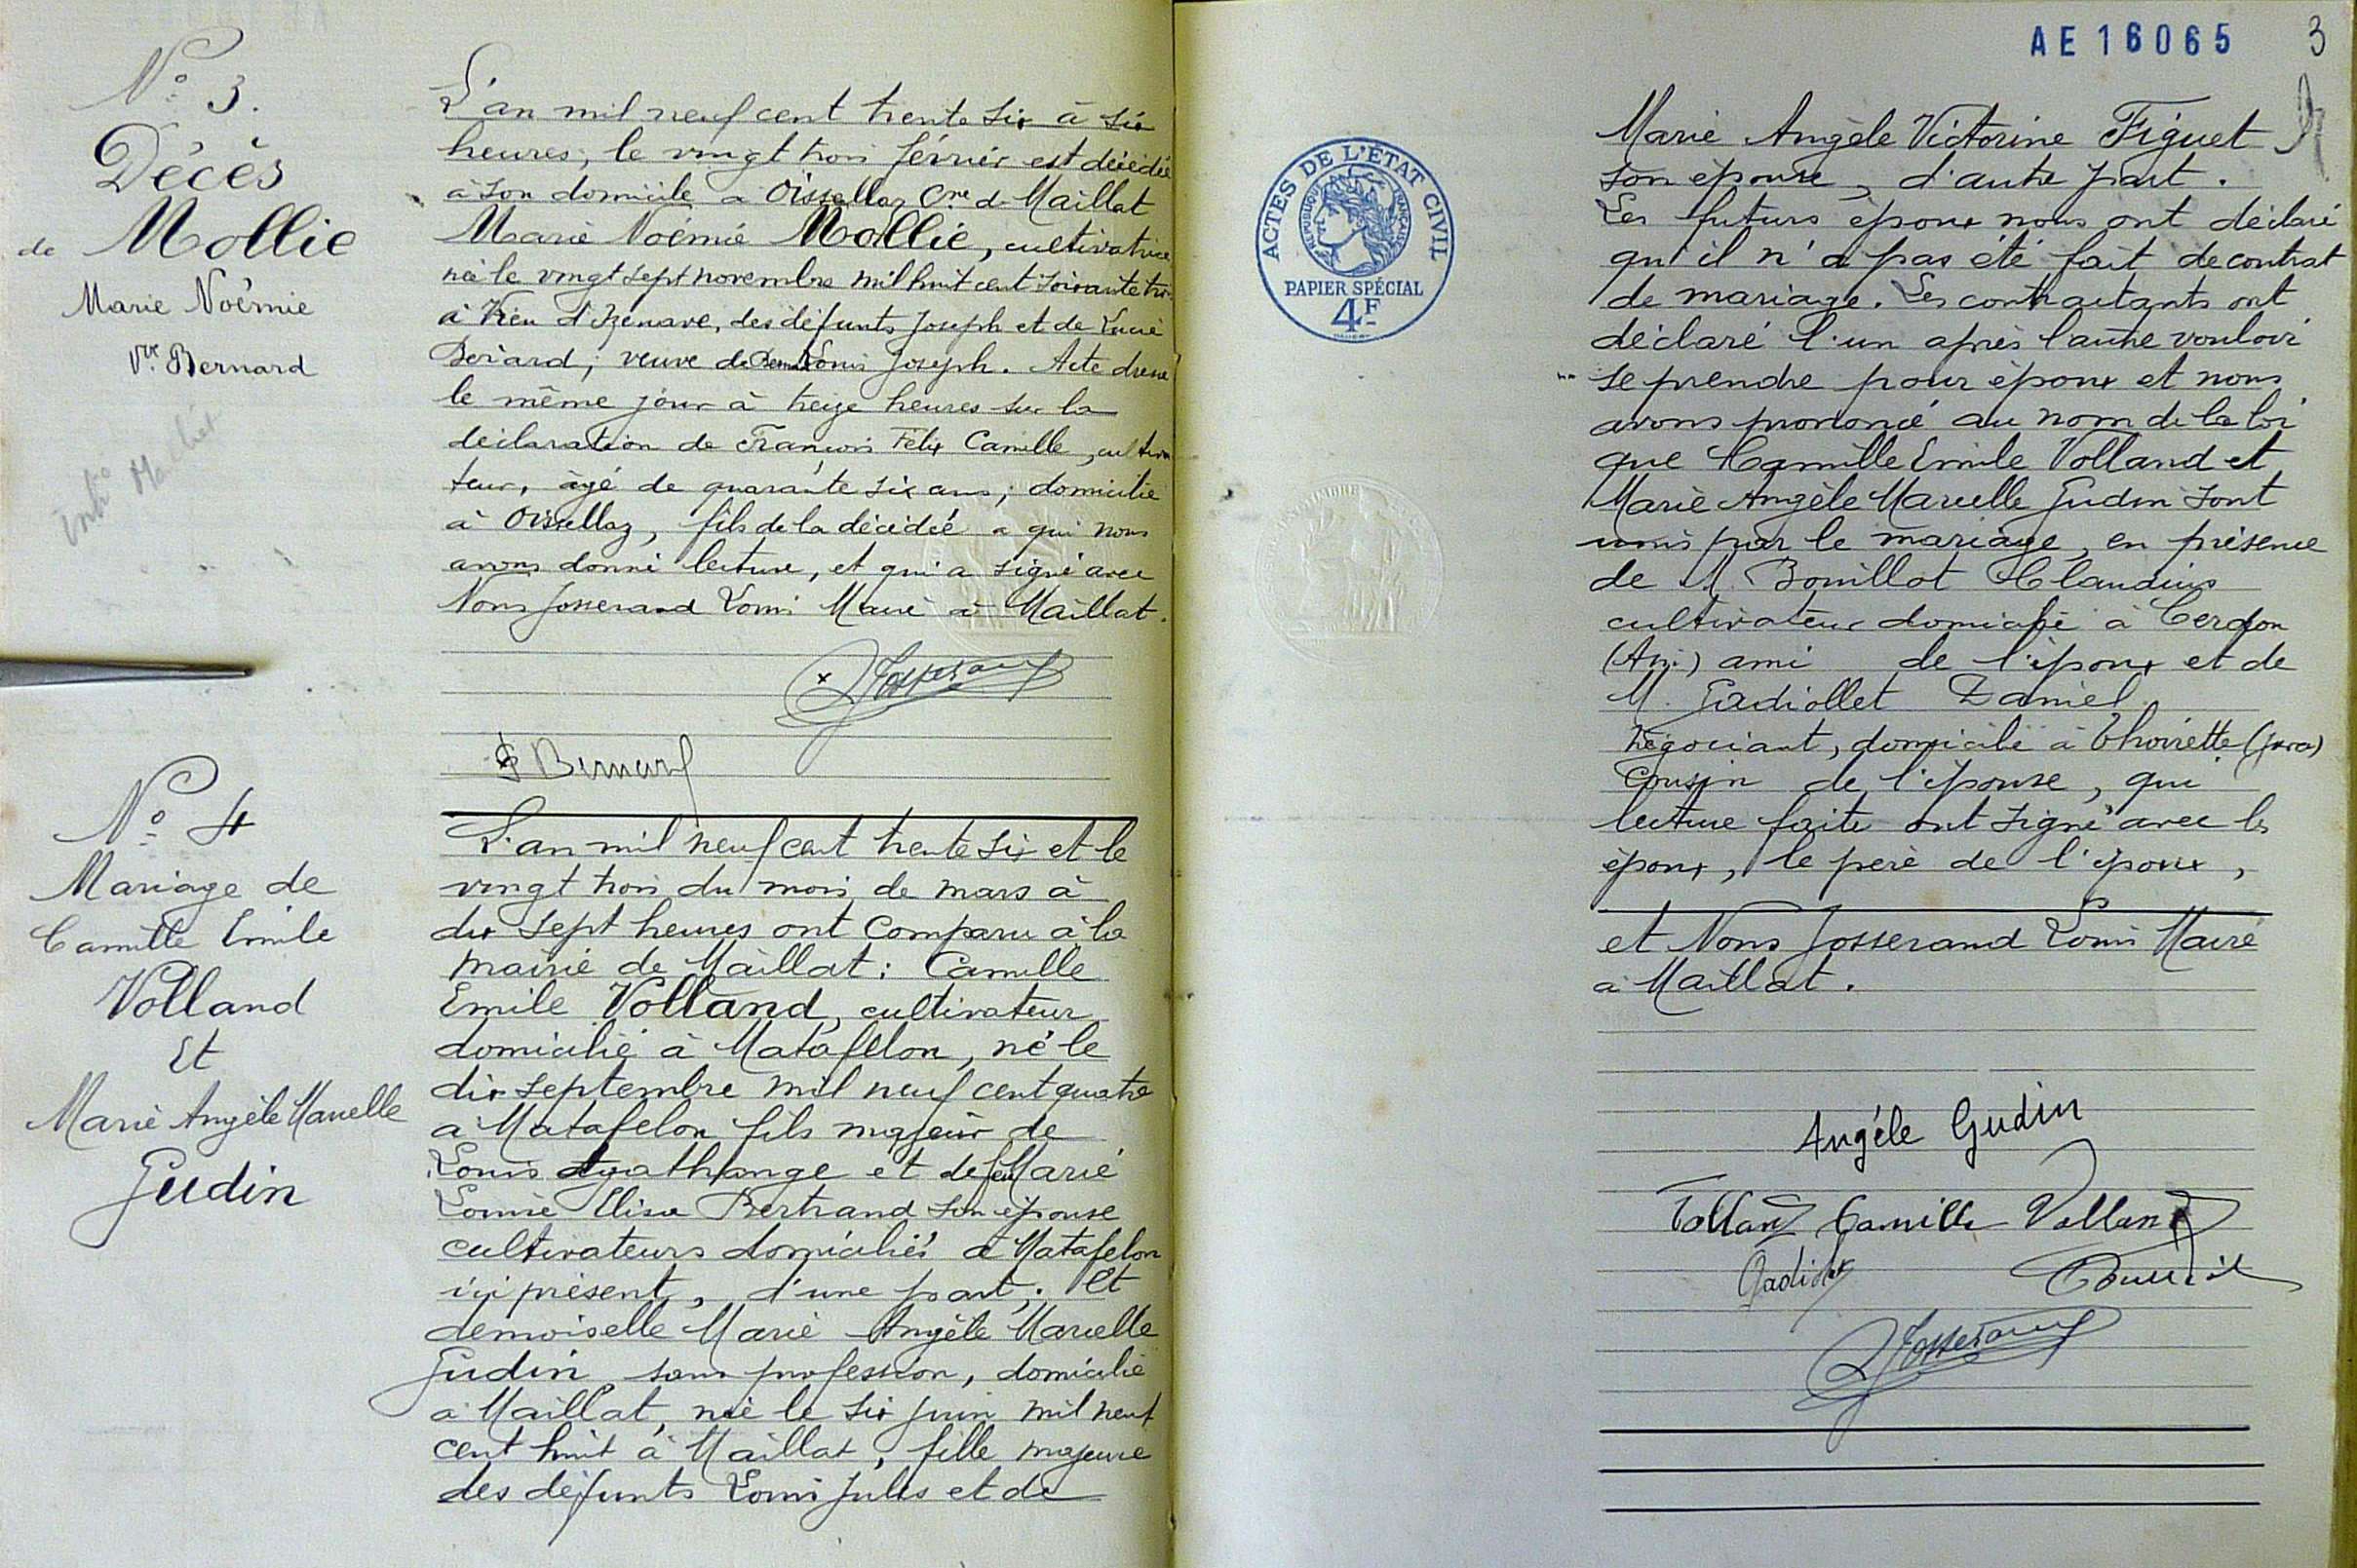 N° 3.
Décès
de Mollie
Marie Noémie
Vve Bernard
L'an mil neuf cent trente six à six
heures, le vingt trois février est décédée
à son domicile à Oissellaz Cne de Maillat
Marie Noémie Mollie, cultivatrice
née le vingt sept novembre mil huit cent soixante
à Vieu d'Izenave, des défunts Joseph et de Lucie
veuve de Louis Joseph. Acte dressé
le même jour à treize heures sur la
déclaration de François Félix Camille, cultiva
teur, âgé de quarante six ans, domicilié
à Oissellaz, fils de la décédée a qui nous
avons donné lecture, et qui a signé avec
Nous Josserand Louis Maire à Maillat.
Josserand
Bernard
N° 4
Mariage de
Camille Emile
Volland
Et
Marie Angèle Marcelle
Gudin
L'an mil neuf cent trente six et le
vingt trois du mois de mars à
dix sept heures ont comparu à la
mairie de Maillat : Camille
Emile Volland, cultivateur
domicilié à Matafelon, né le
dix septembre mil neuf cent quatre
à Matafelon fils majeur de
Louis Agathange et de feu Marie
Louise Elisa Bertrand son épouse
cultivateurs domiciliés à Matafelon
ici présent, d'une part ; Et
demoiselle Marie Angèle Marcelle
Gudin sans profession, domicilié
à Maillat, née le six juin mil neuf
cent huit à Maillat, fille majeure
des défunts Louis Jules et de
AE16065 3
ACTES DE L'ÉTAT CIVIL
RÉPUBLIQUE FRANÇAISE
PAPIER SPÉCIAL
4F
Marie Angèle Victorine Figuet
son épouse, d'autre part.
Les futurs époux nous ont déclaré
qu'il n'a pas été fait de contrat
de mariage. Les contractants ont
déclaré l'un après l'autre vouloir
se prendre pour époux et nous
avons prononcé au nom de la loi
que Camille Emile Volland et
Marie Angèle Marcelle Gudin sont
unis par le mariage, en présence
de M. Bouillot Claudius
cultivateur domicilié à Cerdon
(Ain) ami de l'époux et de
M. Gadiollet Daniel
négociant, domicilié à Thoirette (Jura)
cousin de l'épouse, qui
lecture faite ont signé avec les
époux, le père de l'époux,
et Nous Josserand Louis Maire
à Maillat.
Angèle Gudin
Volland Camille Volland
Josserand